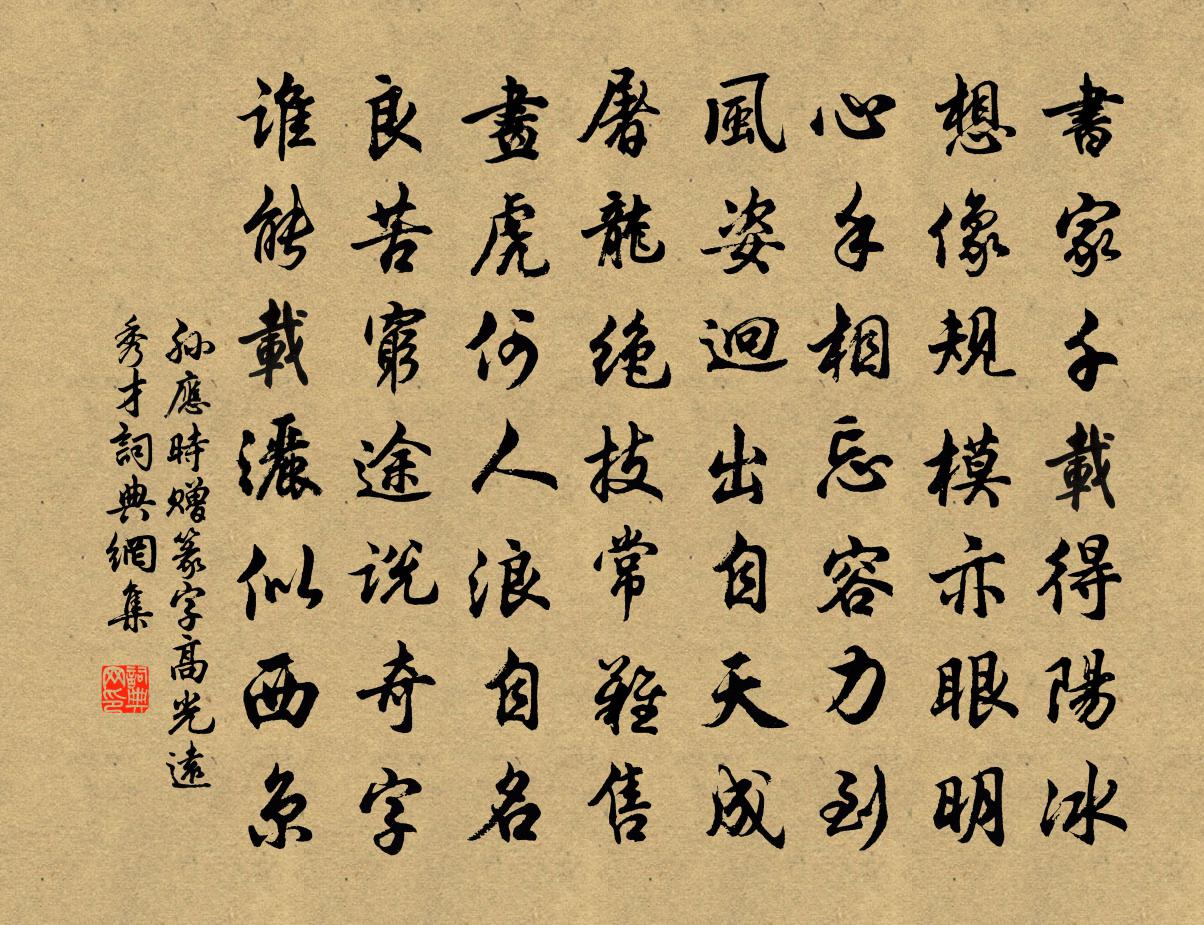 書家千載得陽冰
想像規模亦眼明
心手相忘容力到
風姿迥出自天成
屠龍絕技常難售
畫虎何人浪自名
良苦窮途説奇字
誰能載灑似西京
孫應時贈篆字高光遠
秀才詞典網集
詞典網印